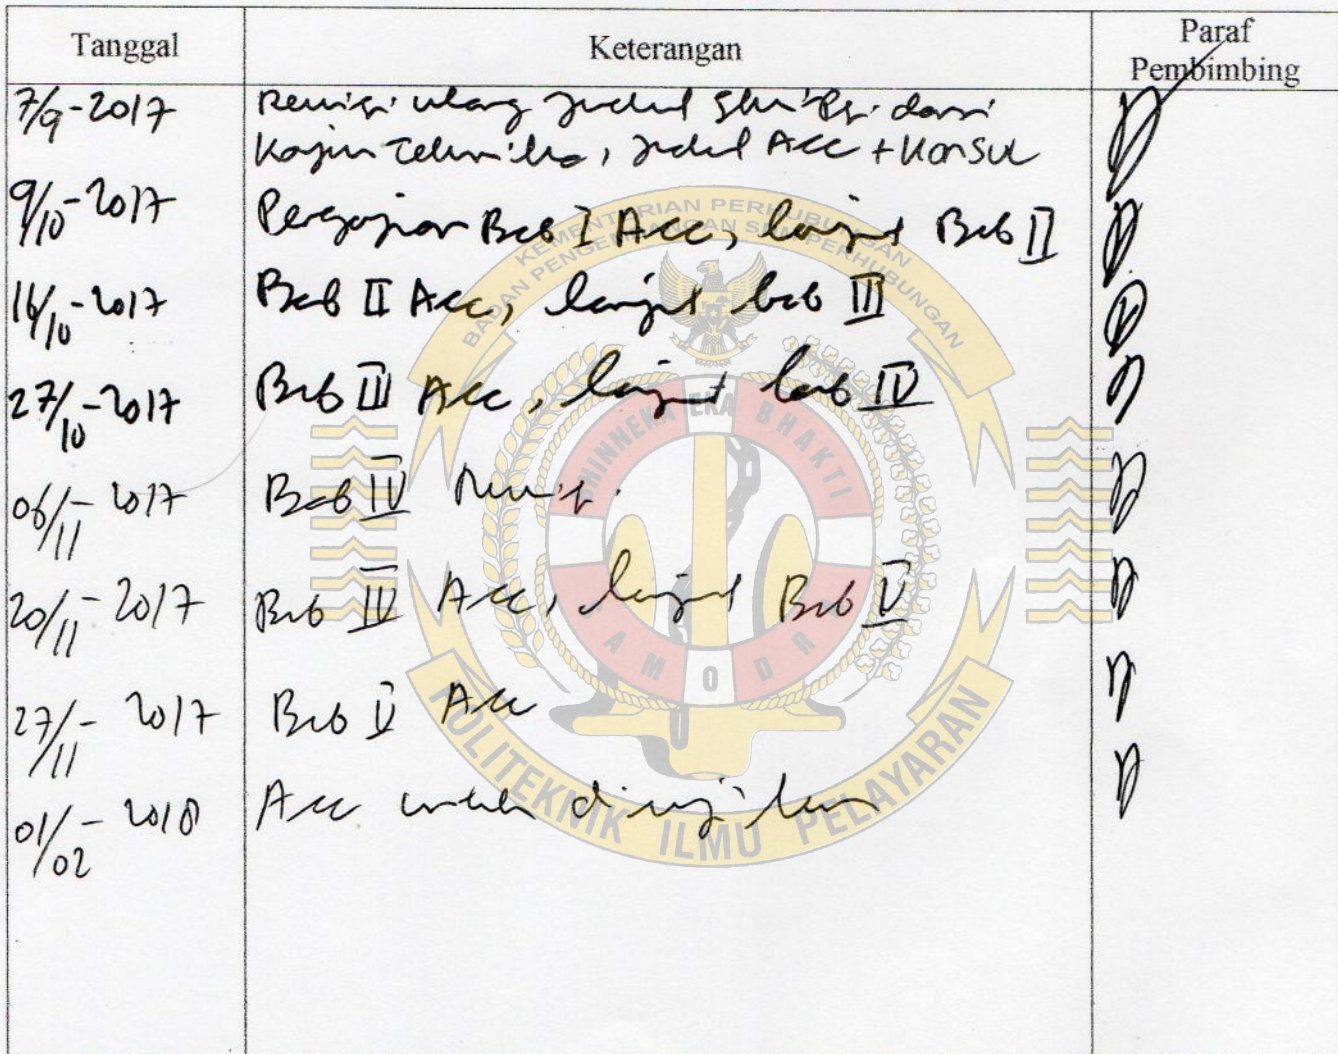 Tanggal
Keterangan
Paraf
Pembimbing
7/9-2017
Revisi ulang judul Skripsi dari
Kajian Teknika, judul Acc + Konsul
9/10-2017
Pengajian Bab I Acc, lanjut Bab II
16/10-2017
Bab II Acc, lanjut bab III
27/10-2017
Bab III Acc, lanjut bab IV
06/11-2017
Bab IV Revisi.
20/11-2017
Bab IV Acc, lanjut Bab V
27/11-2017
Bab V Acc
01/02-2018
Acc untuk diujikan
KEMENTERIAN PERHUBUNGAN
BADAN PENGEMBANGAN SDM PERHUBUNGAN
BHINNEKA EKA BHAKTI
SAMODRA
POLITEKNIK ILMU PELAYARAN